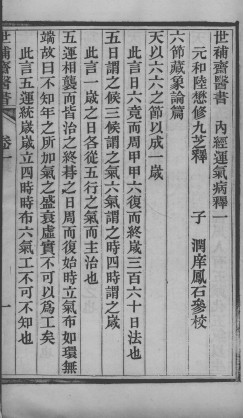 世補齋醫書　內經運氣病釋一
元和陸懋修九芝釋　子　潤庠鳳石參校
六節藏象論篇
天以六六之節以成一歲
此言日六竟而周甲甲六復而終歲三百六十日法也
五日謂之候三候謂之氣六氣謂之時四時謂之歲
此言一歲之日各從五行之氣而主治也
五運相襲而皆治之終朞之日周而復始時立氣布如環無
端故曰不知年之所加氣之盛衰虛實不可以爲工矣
此言五運統歲歲立四時時布六氣工不可不知也
世補齋醫書　卷一　一